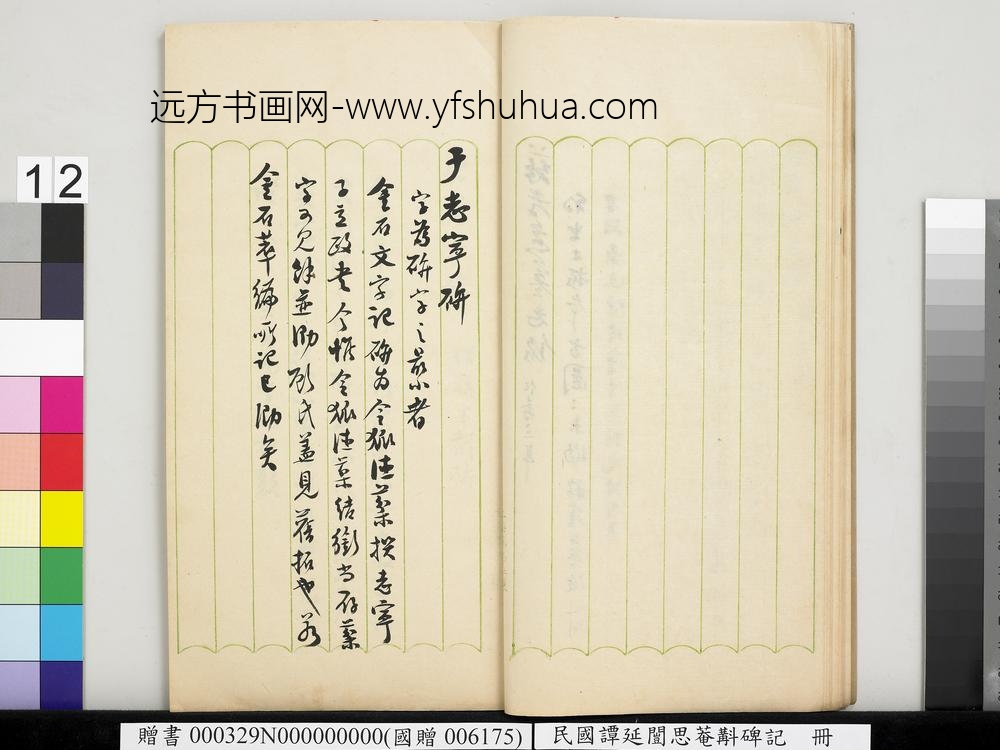 远方书画网-www.yfshuhua.com
12
于志寧碑
字為碑字之最小者
金石文字記碑為令狐德棻撰志寧
子立政書今惟令狐德棻結銜尚存棻
字可見餘並泐顧氏蓋見舊拓也若
金石萃編所記已泐矣
贈書 000329N000000000(國贈 006175)
民國譚延闓思菴斠碑記 冊